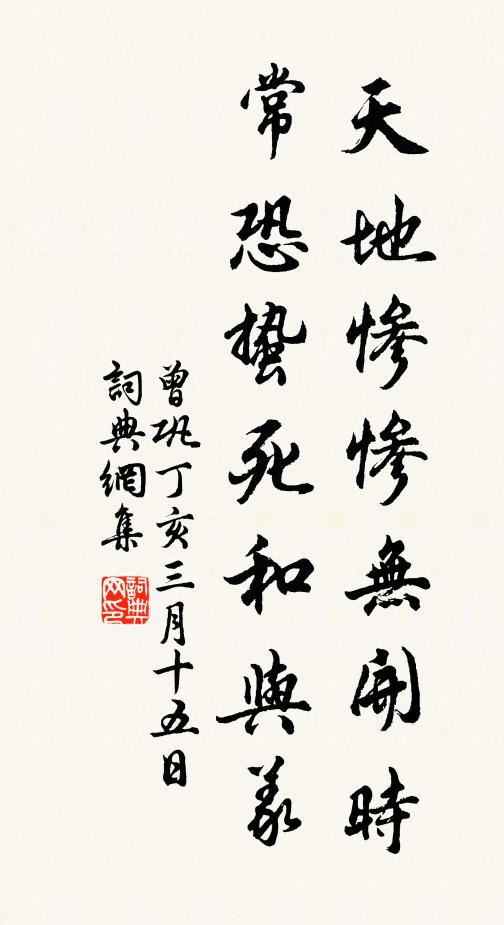 天地慘慘無開時
常恐蟄死和與羲
曾鞏丁亥三月十五日
詞典網集
詞典
网印